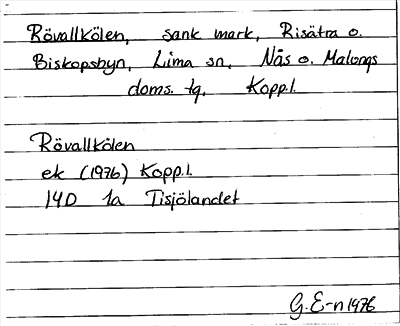 Rövallkölen, sank mark, Risätra o.
Biskopsbyn, Lima sn, Nås o. Malungs
doms. tg, Kopp.l.
Rövallkölen
ek (1976) Kopp.l.
14D 1a Tisjölandet
G. E-n 1976